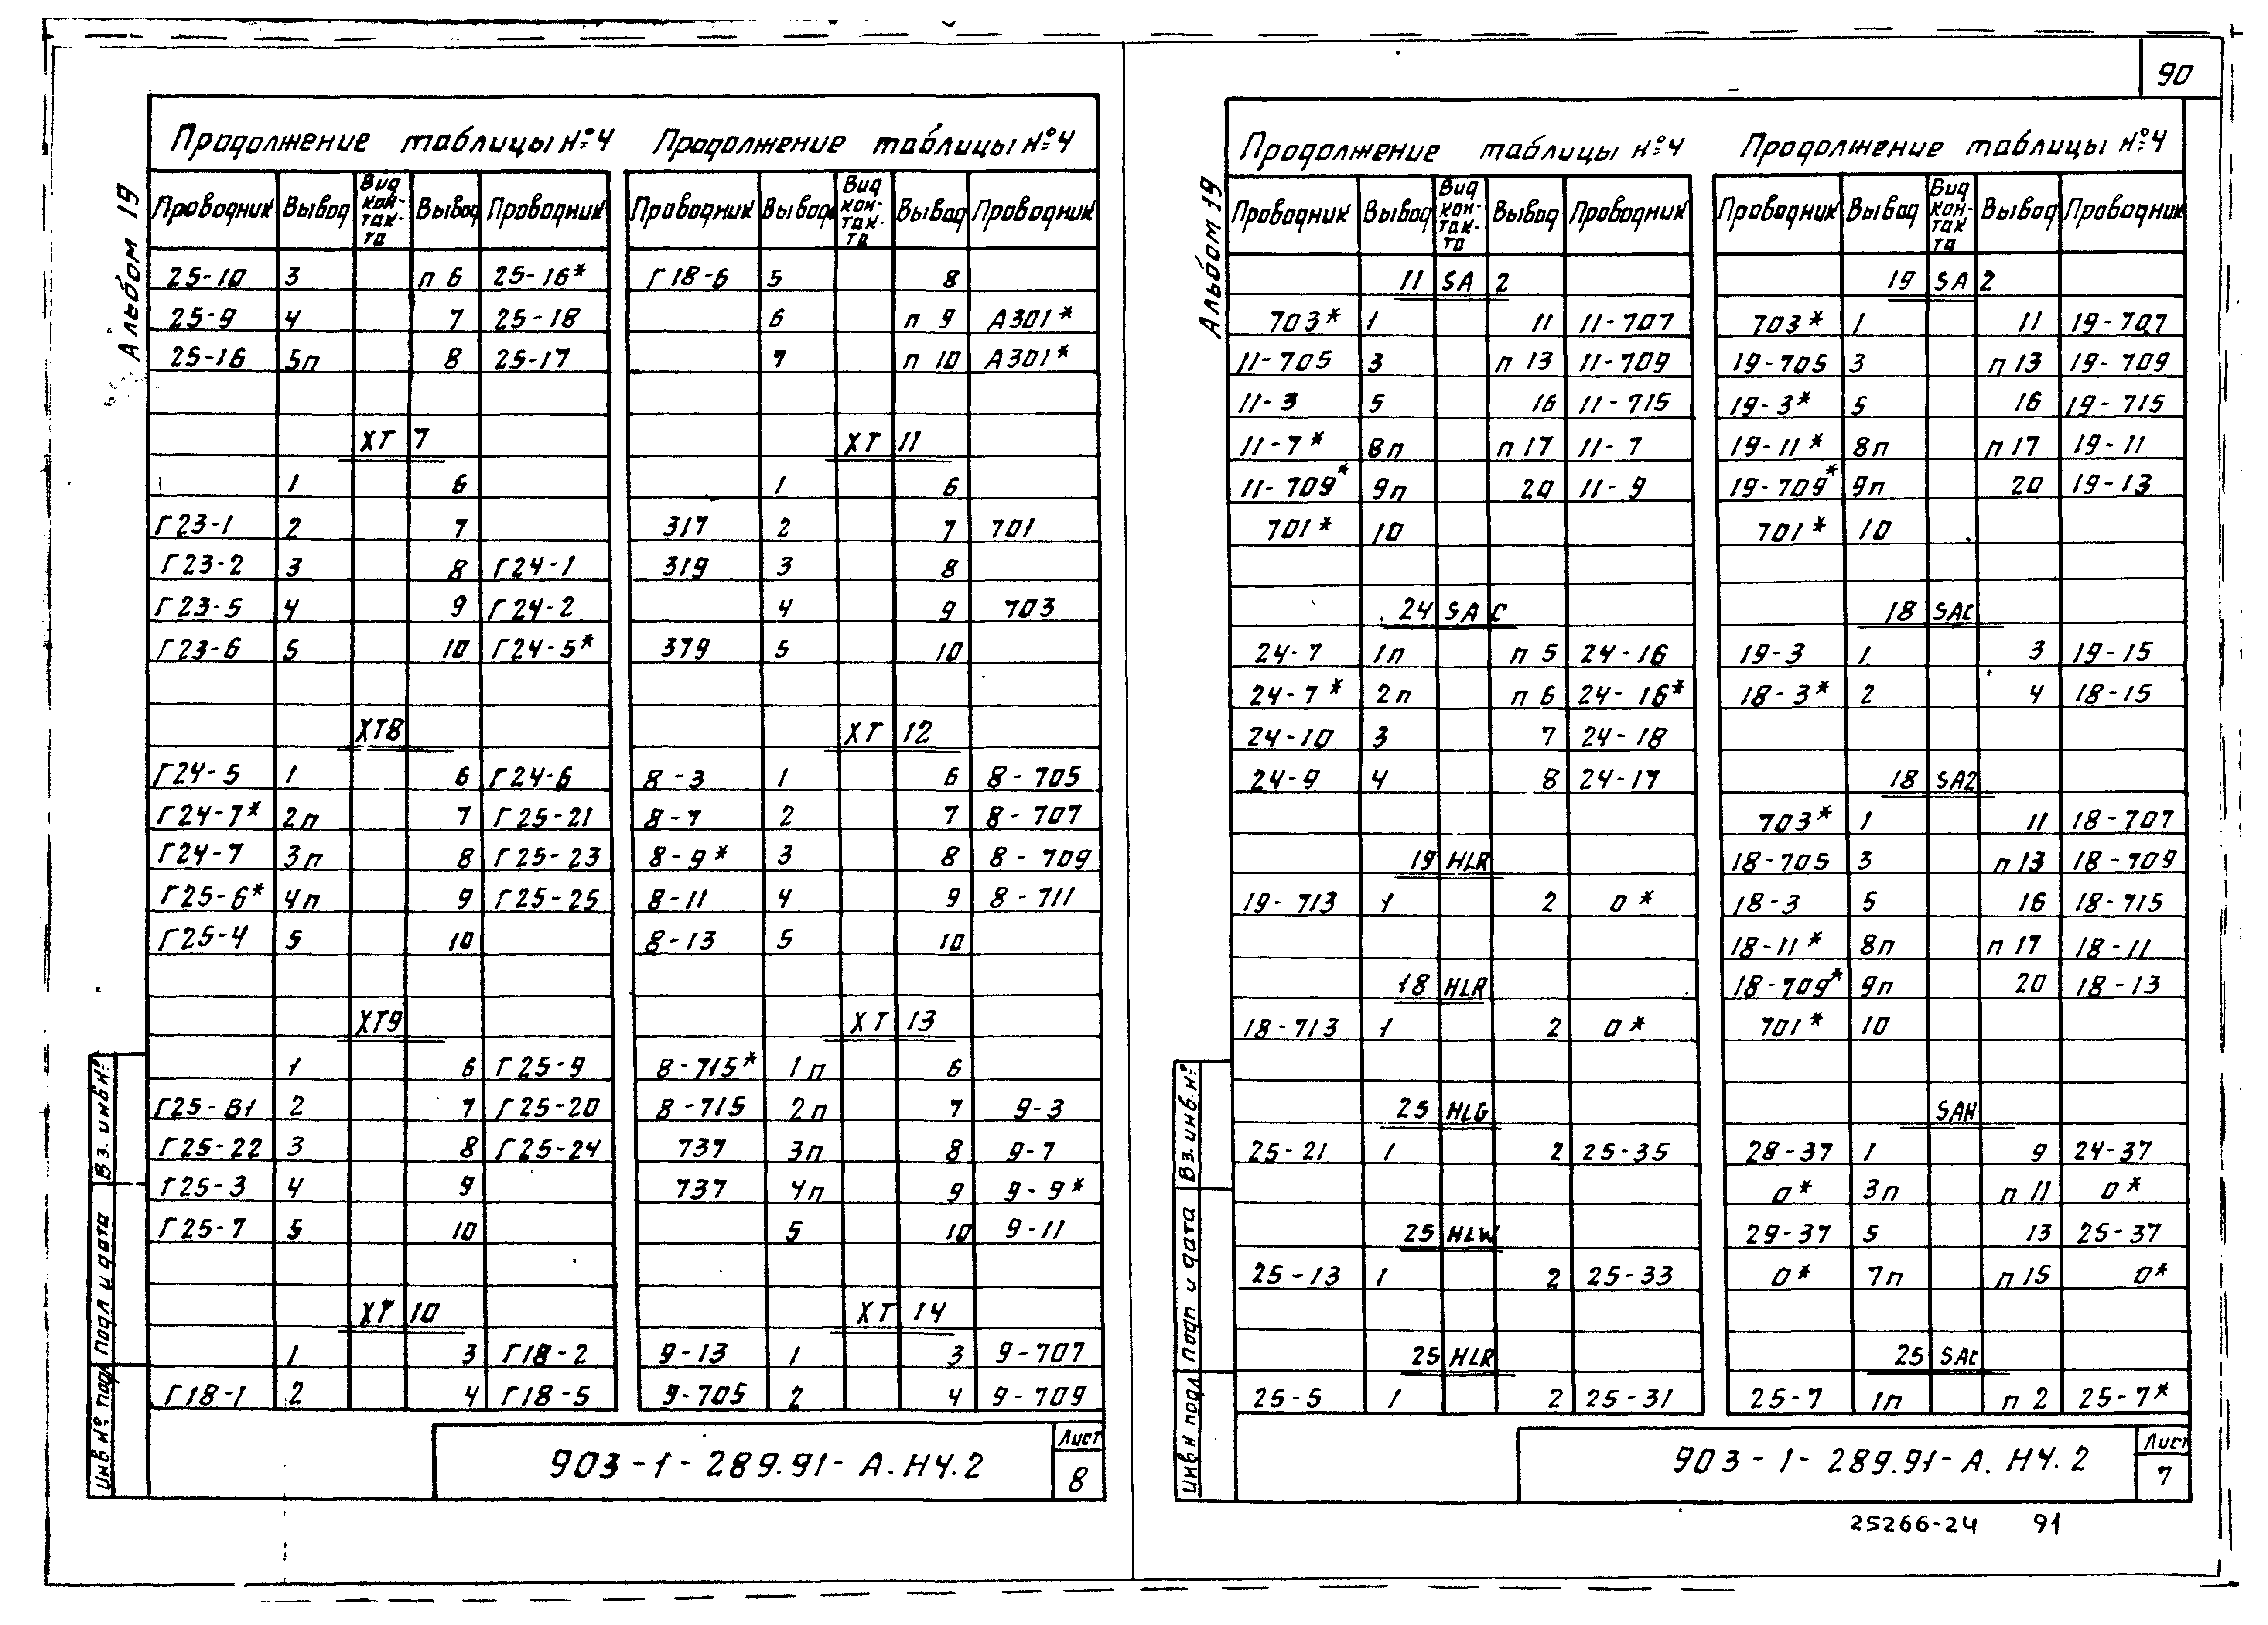 90
Альбом 19
Продолжение таблицы №4
Проводник Вывод Вид контакта Вывод Проводник
25-10 3 п 6 25-16*
25-9 4 7 25-18
25-16 5п 8 25-17
XT 7
1 6
Г23-1 2 7
Г23-2 3 8 Г24-1
Г23-5 4 9 Г24-2
Г23-6 5 10 Г24-5*
XT8
Г24-5 1 6 Г24-6
Г24-7* 2п 7 Г25-21
Г24-7 3п 8 Г25-23
Г25-6* 4п 9 Г25-25
Г25-4 5 10
XT9
1 6 Г25-9
Г25-В1 2 7 Г25-20
Г25-22 3 8 Г25-24
Г25-3 4 9
Г25-7 5 10
XT 10
1 3 Г18-2
Г18-1 2 4 Г18-5
Продолжение таблицы №4
Проводник Вывод Вид контакта Вывод Проводник
Г18-6 5 8
6 п 9 А301*
7 п 10 А301*
XT 11
1 6
317 2 7 701
319 3 8
4 9 703
379 5 10
XT 12
8-3 1 6 8-705
8-7 2 7 8-707
8-9* 3 8 8-709
8-11 4 9 8-711
8-13 5 10
XT 13
8-715* 1п 6
8-715 2п 7 9-3
737 3п 8 9-7
737 4п 9 9-9*
5 10 9-11
XT 14
9-13 1 3 9-707
9-705 2 4 9-709
Инв № подл Подп и дата Вз. инв №
903-1-289.91-А.НЧ.2
Лист
8
Альбом 19
Продолжение таблицы №4
Проводник Вывод Вид контакта Вывод Проводник
11 SA 2
703* 1 11 11-707
11-705 3 п 13 11-709
11-3 5 16 11-715
11-7* 8п п 17 11-7
11-709* 9п 20 11-9
701* 10
24 SA C
24-7 1п п 5 24-16
24-7* 2п п 6 24-16*
24-10 3 7 24-18
24-9 4 8 24-17
19 HLR
19-713 1 2 0*
18 HLR
18-713 1 2 0*
25 HLG
25-21 1 2 25-35
25 HLW
25-13 1 2 25-33
25 HLR
25-5 1 2 25-31
Продолжение таблицы №4
Проводник Вывод Вид контакта Вывод Проводник
19 SA 2
703* 1 11 19-707
19-705 3 п 13 19-709
19-3* 5 16 19-715
19-11* 8п п 17 19-11
19-709* 9п 20 19-13
701* 10
18 SAC
19-3 1 3 19-15
18-3* 2 4 18-15
18 SA2
703* 1 11 18-707
18-705 3 п 13 18-709
18-3 5 16 18-715
18-11* 8п п 17 18-11
18-709* 9п 20 18-13
701* 10
SAH
28-37 1 9 24-37
0* 3п п 11 0*
29-37 5 13 25-37
0* 7п п 15 0*
25 SAC
25-7 1п п 2 25-7*
Инв № подл Подп и дата Вз. инв. №
903-1-289.91-А.НЧ.2
Лист
7
25266-24 91